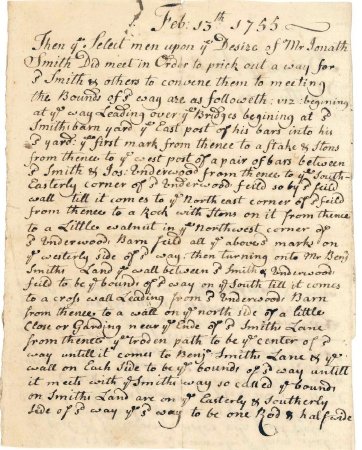 Feb. 13th 1755
Then ye Select men upon ye Desire of Mr Jonath
Smith Did meet in Order to prick out a way for
sd Smith & others to convene them to meeting
the Bounds of sd way are as followeth: viz: begining
at ye way Leading over ye Bridges begining at sd
Smiths barn yard ye East post of his bars into his
sd yard ye first mark from thence to a stake & Stons
from thence to ye west post of a pair of bars between
sd Smith & Jos: Underwood from thence to ye South
Easterly corner of sd Underwood feild so by sd feild
wall till it comes to ye North east corner of sd feild
from thence to a Rock with Stons on it from thence
to a Little walnut in ye Northwest corner of
sd Underwood Barn feild all ye above sd mark on
ye westerly side of sd way then turning onto Mr Benj
Smiths Land ye wall between sd Smith & Underwood
feild to be ye bounds of sd way on ye South till it comes
to a cross wall Leading from sd Underwood Barn
from thence to a wall on ye north side of a little
Close or Garding near ye Ende of sd Smiths Lane
from thence ye troden path to be ye center of sd
way untill it comes to Benj Smiths Lane & ye
wall on Each Side to be ye bounds of sd way untill
it meets with ye Smiths way so called ye bounds
on Smiths Land are on ye Easterly & Southerly
Side of sd way ye sd way to be one Rod & half wide